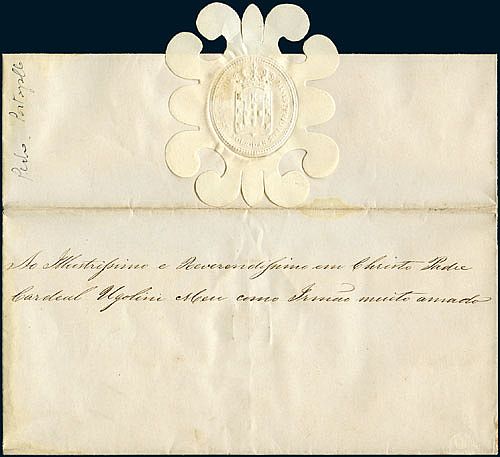 Ao Illustrissimo e Reverendissimo em Christo Padre
Cardeal Ugolini Meu como Irmão muito amado
Pedro. Portogallo